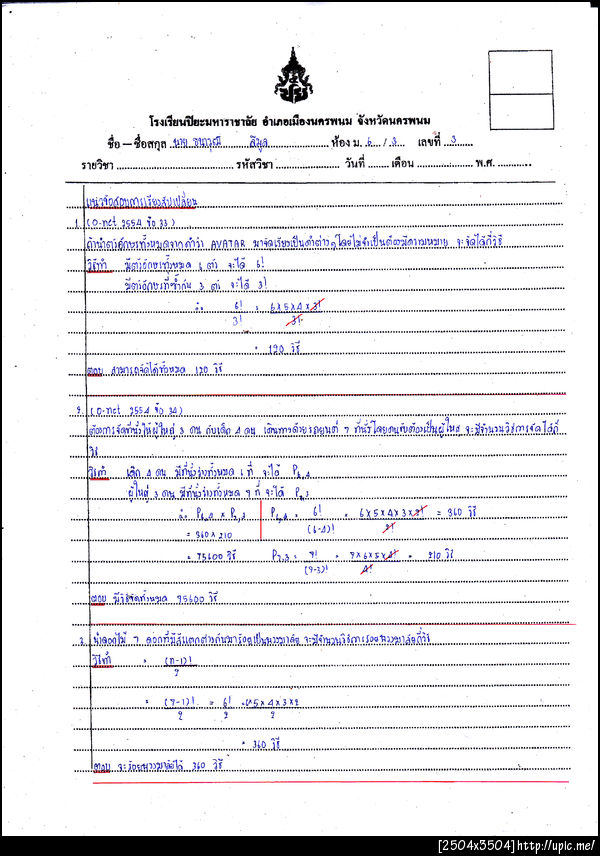 โรงเรียนปิยะมหาราชาลัย อำเภอเมืองนครพนม จังหวัดนครพนม
ชื่อ – ชื่อสกุล นาย ห้อง ม. 6 / 3 เลขที่ 3
รายวิชา รหัสวิชา วันที่ เดือน พ.ศ.
แนวข้อสอบการเรียงสับเปลี่ยน
1. (O-net 2554 ข้อ 33)
ถ้านำตัวอักษรทั้งหมดจากคำว่า AVATAR มาจัดเรียงเป็นคำต่างๆโดยไม่จำเป็นต้องมีความหมาย จะจัดได้กี่วิธี
วิธีทำ มีตัวอักษรทั้งหมด 6 ตัว จะได้ 6!
มีตัวอักษรที่ซ้ำกัน 3 ตัว จะได้ 3!
∴ 6!/3! = 6×5×4×3!/3!
= 120 วิธี
ตอบ สามารถจัดได้ทั้งหมด 120 วิธี
2. (O-net 2554 ข้อ 34)
ต้องการจัดที่นั่งให้ผู้ใหญ่ 3 คน กับเด็ก 4 คน เดินทางด้วยรถยนต์ 7 ที่นั่งโดยคนขับต้องเป็นผู้ใหญ่ จะมีจำนวนวิธีการจัดได้กี่
วิธี
วิธีทำ เด็ก 4 คน มีที่นั่งรับทั้งหมด 6 ที่ จะได้ P6,4
ผู้ใหญ่ 3 คน มีที่นั่งรับทั้งหมด 7 ที่ จะได้ P7,3
∴ P6,4 × P7,3 P6,4 = 6!/(6-4)! = 6×5×4×3×2!/2! = 360 วิธี
= 360×210
= 75600 วิธี P7,3 = 7!/(7-3)! = 7×6×5×4!/4! = 210 วิธี
ตอบ มีวิธีจัดทั้งหมด 75600 วิธี
3. นำดอกไม้ 7 ดอกที่มีสีแตกต่างกันมาร้อยเป็นพวงมาลัย จะมีจำนวนวิธีการร้อยพวงมาลัยกี่วิธี
วิธีทำ = (n-1)!/2
= (7-1)!/2 = 6!/2 = 6×5×4×3×2/2
= 360 วิธี
ตอบ จะร้อยพวงมาลัยได้ 360 วิธี
[2504x3504]http://upic.me/